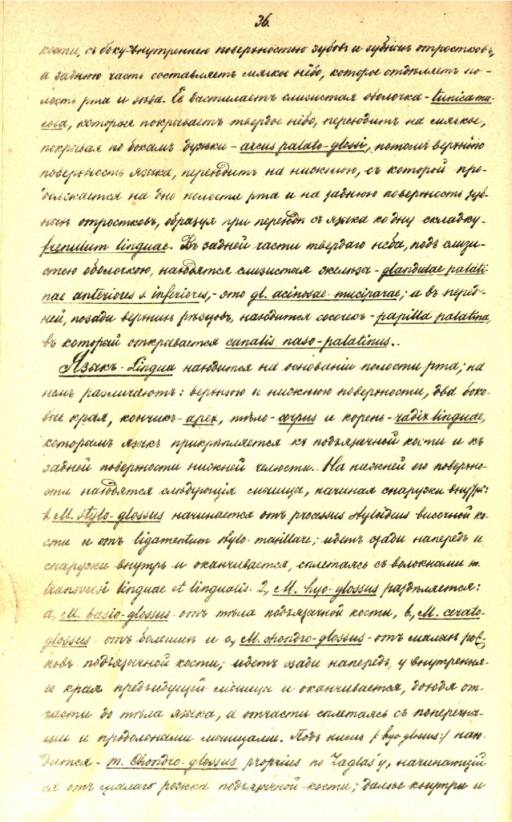 36.
кости, съ боку внутреннею поверхностью зубовъ и зубныхъ отростковъ,
а заднюю часть составляетъ мягкое нёбо, которое отдѣляетъ по-
лость рта и зѣва. Ее выстилаетъ слизистая оболочка - tunica mu-
cosa, которая покрываетъ твердое нёбо, переходитъ на мягкое,
покрывая по бокамъ дужки - arcus palato-glossi, потомъ верхнюю
поверхность языка, переходитъ на нижнюю, съ которой про-
должается на дно полости рта и на заднюю поверхность зуб-
ныхъ отростковъ, образуя при переходѣ съ языка ко дну складку -
frenulum linguae. Въ задней части твердаго нёба, подъ слизи-
стою оболочкою, находятся слизистыя железы - glandulae palati-
nae anteriores s. inferiores, - это gl. acinosae muciparae; и въ перед-
ней, позади верхнихъ рѣзцовъ, находится сосочекъ - papilla palatina,
въ которой открывается canalis naso-palatinus.
Языкъ - Lingua находится на основаніи полости рта; на
немъ различаютъ: верхнюю и нижнюю поверхности, два боко-
вые края, кончикъ - apex, тѣло - corpus и корень - radix linguae,
которымъ языкъ прикрѣпляется къ подъязычной кости и къ
задней поверхности нижней челюсти. На нижней его поверхно-
сти находятся слѣдующія мышцы, начиная снаружи внутрь:
1, M. stylo-glossus начинается отъ processus styloideus височной ко-
сти и отъ ligamentum stylo-maxillare; идетъ сзади напередъ и
снаружи внутрь и оканчивается, сплетаясь съ волокнами m.
transversi linguae et lingualis. 2, M. hyo-glossus раздѣляется:
a, M. basio-glossus - отъ тѣла подъязычной кости, b, M. cerato-
glossus - отъ большихъ и c, M. chondro-glossus - отъ малыхъ рож-
ковъ подъязычной кости; идетъ сзади напередъ, у внутрення-
го края предыдущей мышцы и оканчивается, доходя от-
части до тѣла языка, а отчасти сплетаясь съ поперечны-
ми и продольными мышцами. Подъ нимъ /: hyo-glossus :/ нахо-
дится - m. Chondro-glossus proprius по Zaglas'у, начинающій
ся отъ малаго рожка подъязычной кости; далѣе кнутри и